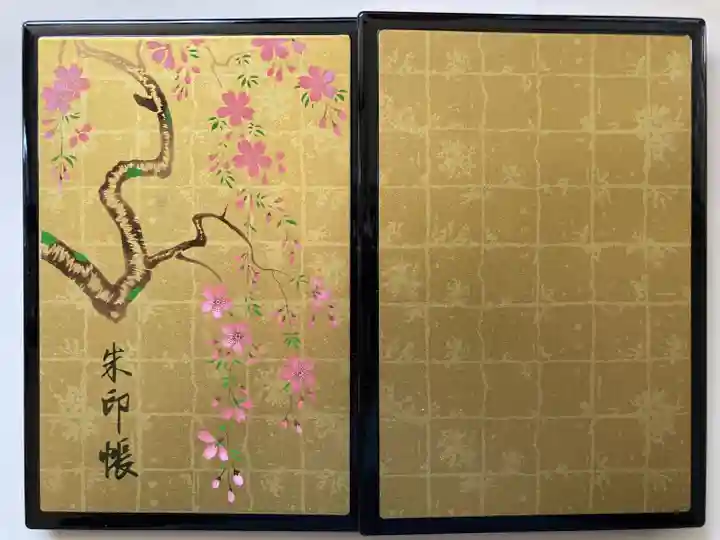 朱印帳